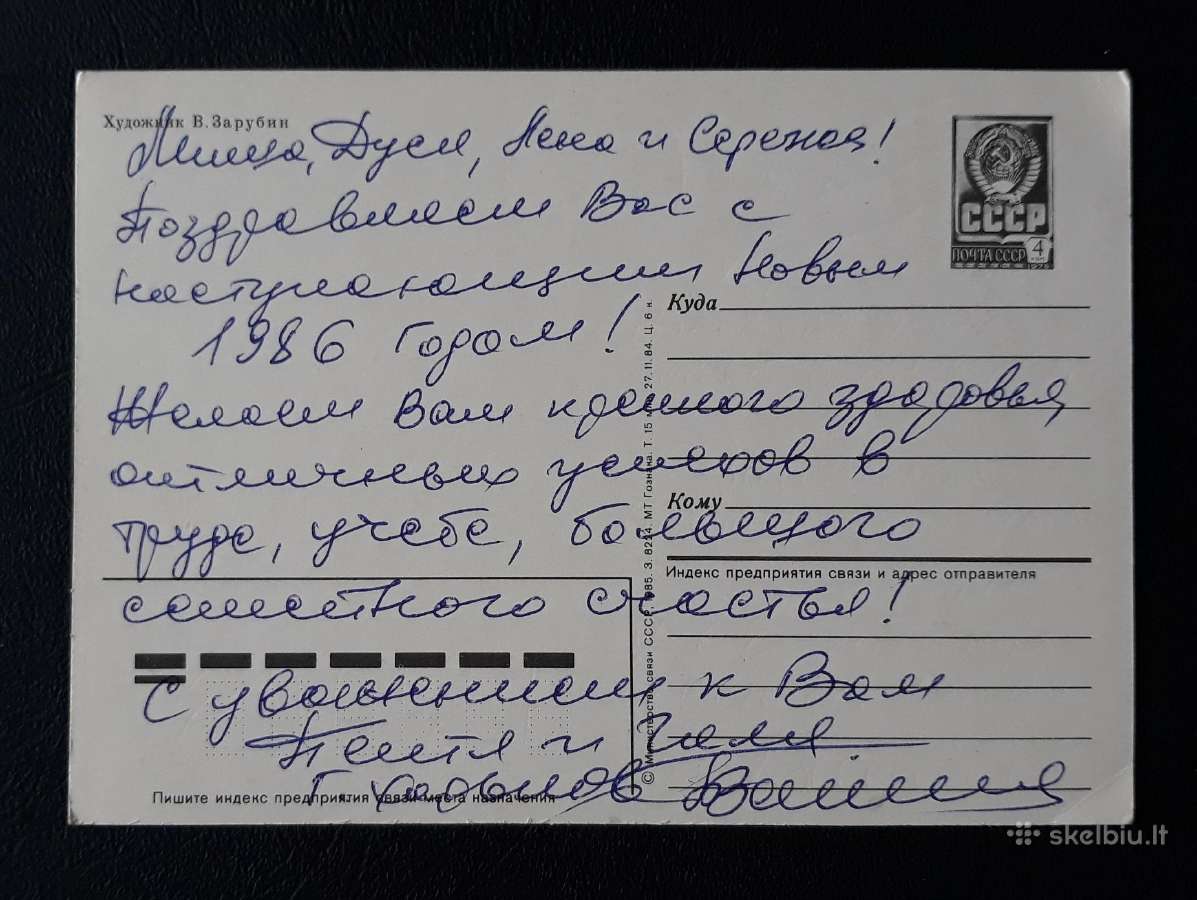 Художник В. Зарубин
Миша, Дуся, Лена и Сережа!
Поздравляем Вас с
наступающим Новым
1986 годом!
Желаем Вам крепкого здоровья,
отличных успехов в
труде, учебе, большого
семейного счастья!
С уважением к Вам
Петя и Галя
СССР
ПОЧТА СССР
4
Куда
Кому
Индекс предприятия связи и адрес отправителя
Пишите индекс предприятия связи места назначения
© Министерство связи СССР, 1985. З. 8224. МТ Гознака. Т. 15 27.11.84. Ц. 6 к.
skelbiu.lt